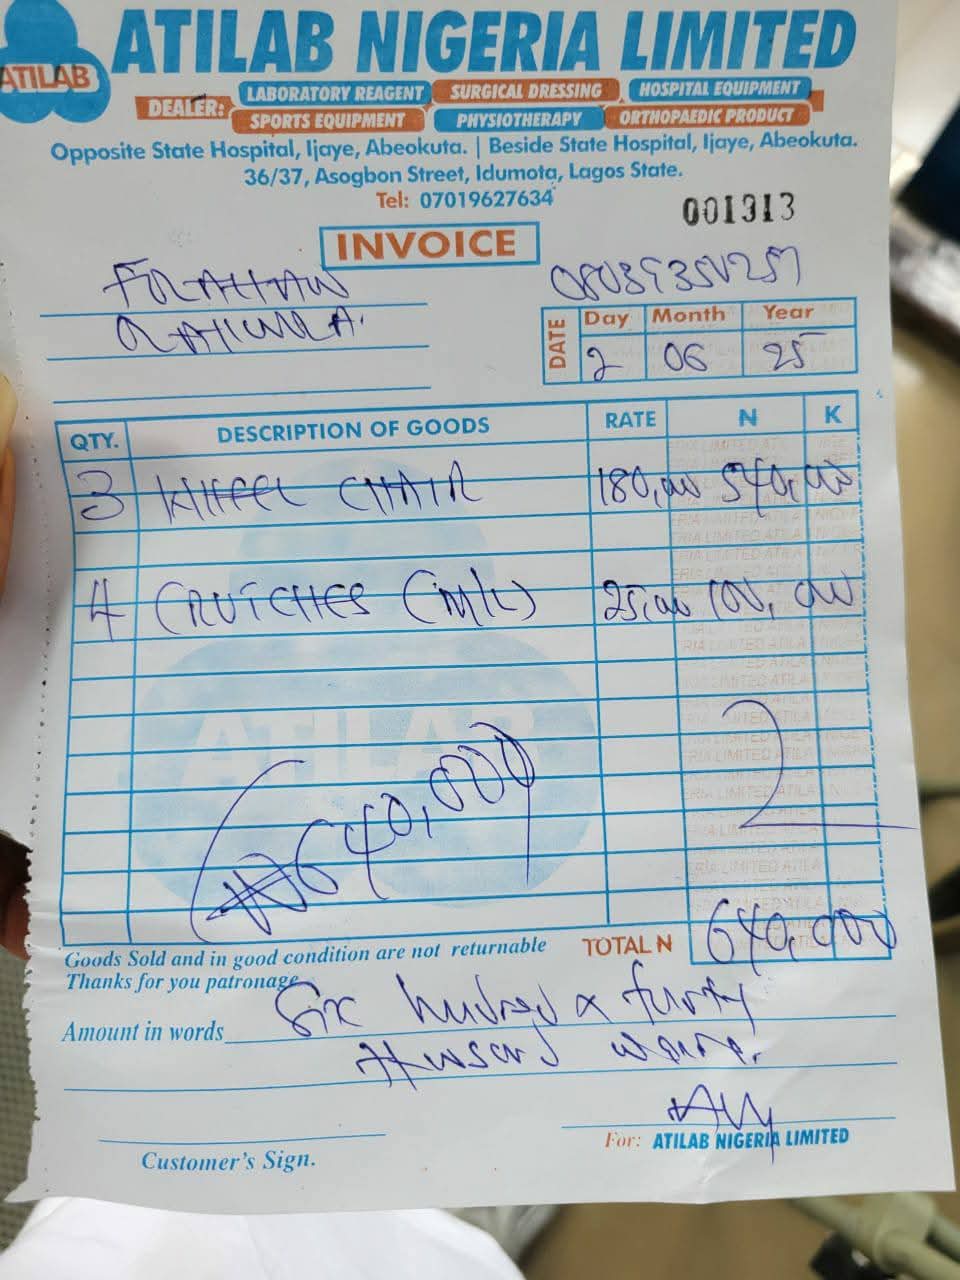 ATILAB NIGERIA LIMITED
ATILAB
DEALER: LABORATORY REAGENT SURGICAL DRESSING HOSPITAL EQUIPMENT
SPORTS EQUIPMENT PHYSIOTHERAPY ORTHOPAEDIC PRODUCT
Opposite State Hospital, Ijaye, Abeokuta. | Beside State Hospital, Ijaye, Abeokuta.
36/37, Asogbon Street, Idumota, Lagos State.
Tel: 07019627634
001313
INVOICE
DATE Day Month Year
2 06 25
QTY. DESCRIPTION OF GOODS RATE N K
3 WHEEL CHAIR 180,000 540,000
4 CRUTCHES (M/L) 25,000 100,000
₦640,000
Goods Sold and in good condition are not returnable TOTAL N 640,000
Thanks for you patronage
Amount in words Six hundred & fourty
thousand naira.
For: ATILAB NIGERIA LIMITED
Customer's Sign.